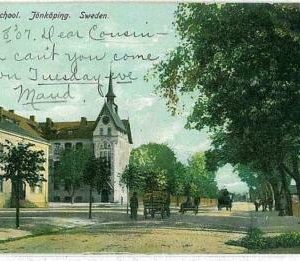 school. Jönköping. Sweden.
8'07. Dear Cousin-
can't you come
on Tuesday eve
Maud